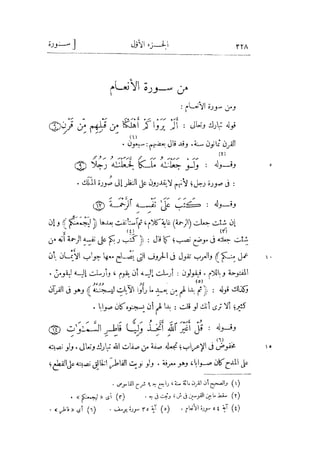 ٣٢٨ الجزء الأول [ سورة
من سورة الأنعام
ومن سورة الأنعام :
قوله تبارك وتعالى : أَلَمْ يَرَوْا كَمْ أَهْلَكْنَا مِن قَبْلِهِم مِّن قَرْنٍ (٦)
القرن ثمانون سنة. وقد قال بعضهم : سبعون (١) .
وقــوله : وَلَوْ جَعَلْنَٰهُ مَلَكًا لَّجَعَلْنَٰهُ رَجُلًا (٩) ٥
: فى صورة رجل (٢) ؛ لأنهم لا يقدرون على النظر إلى صورة الملَك .
وقــوله : كَتَبَ عَلَىٰ نَفْسِهِ ٱلرَّحْمَةَ (١٢)
إن شئت جعلت (الرحمة) غاية كلام ، ثم استأنفت بعدها (لَيَجْمَعَنَّكُمْ) و إن
شئت جعلته (٣) فى موضع نصب؛ كما قال : (كَتَبَ (٤) رَبُّكُمْ على نفسِه الرحمة أنه من
عمل منكم) والعرب تقول فى الحروف التى يصلح معها جواب الأيمان بأن ١٠
المفتوحة وباللام . فيقولون : أرسلت إليه أن يقوم ، وأرسلت إليه ليقومنّ .
وكذلك قوله : (ثم (٥) بدا لهم مِن بعدِ ما رأوا الآياتِ ليسجُنُنَّه) وهو فى القرآن
كثير؛ ألا ترى أنك لو قلت : بدا لهم أن يسجنوه كان صوابا .
وقــوله : قُلْ أَغَيْرَ ٱللَّهِ أَتَّخِذُ وَلِيًّا فَاطِرِ ٱلسَّمَٰوَٰتِ (١٤)
مخفوض (٦) فى الإعراب؛ تجعله صفة من صفات الله تبارك وتعالى . ولو نصبته ١٥
على المدح كان صوابا ، وهو معرفة . ولو نويت الفاطر الخالق نصبته على القطع ؛
(١) والصحيح أن القرن مائة سنة ، راجع شرح القاموس .
(٢) سقط ما بين القوسين فى ش ، وثبت فى ج . (٣) أى « ليجمعنكم » .
(٤) آية ٥٤ سورة الأنعام . (٥) آية ٣٥ سورة يوسف . (٦) أى « فاطر » .